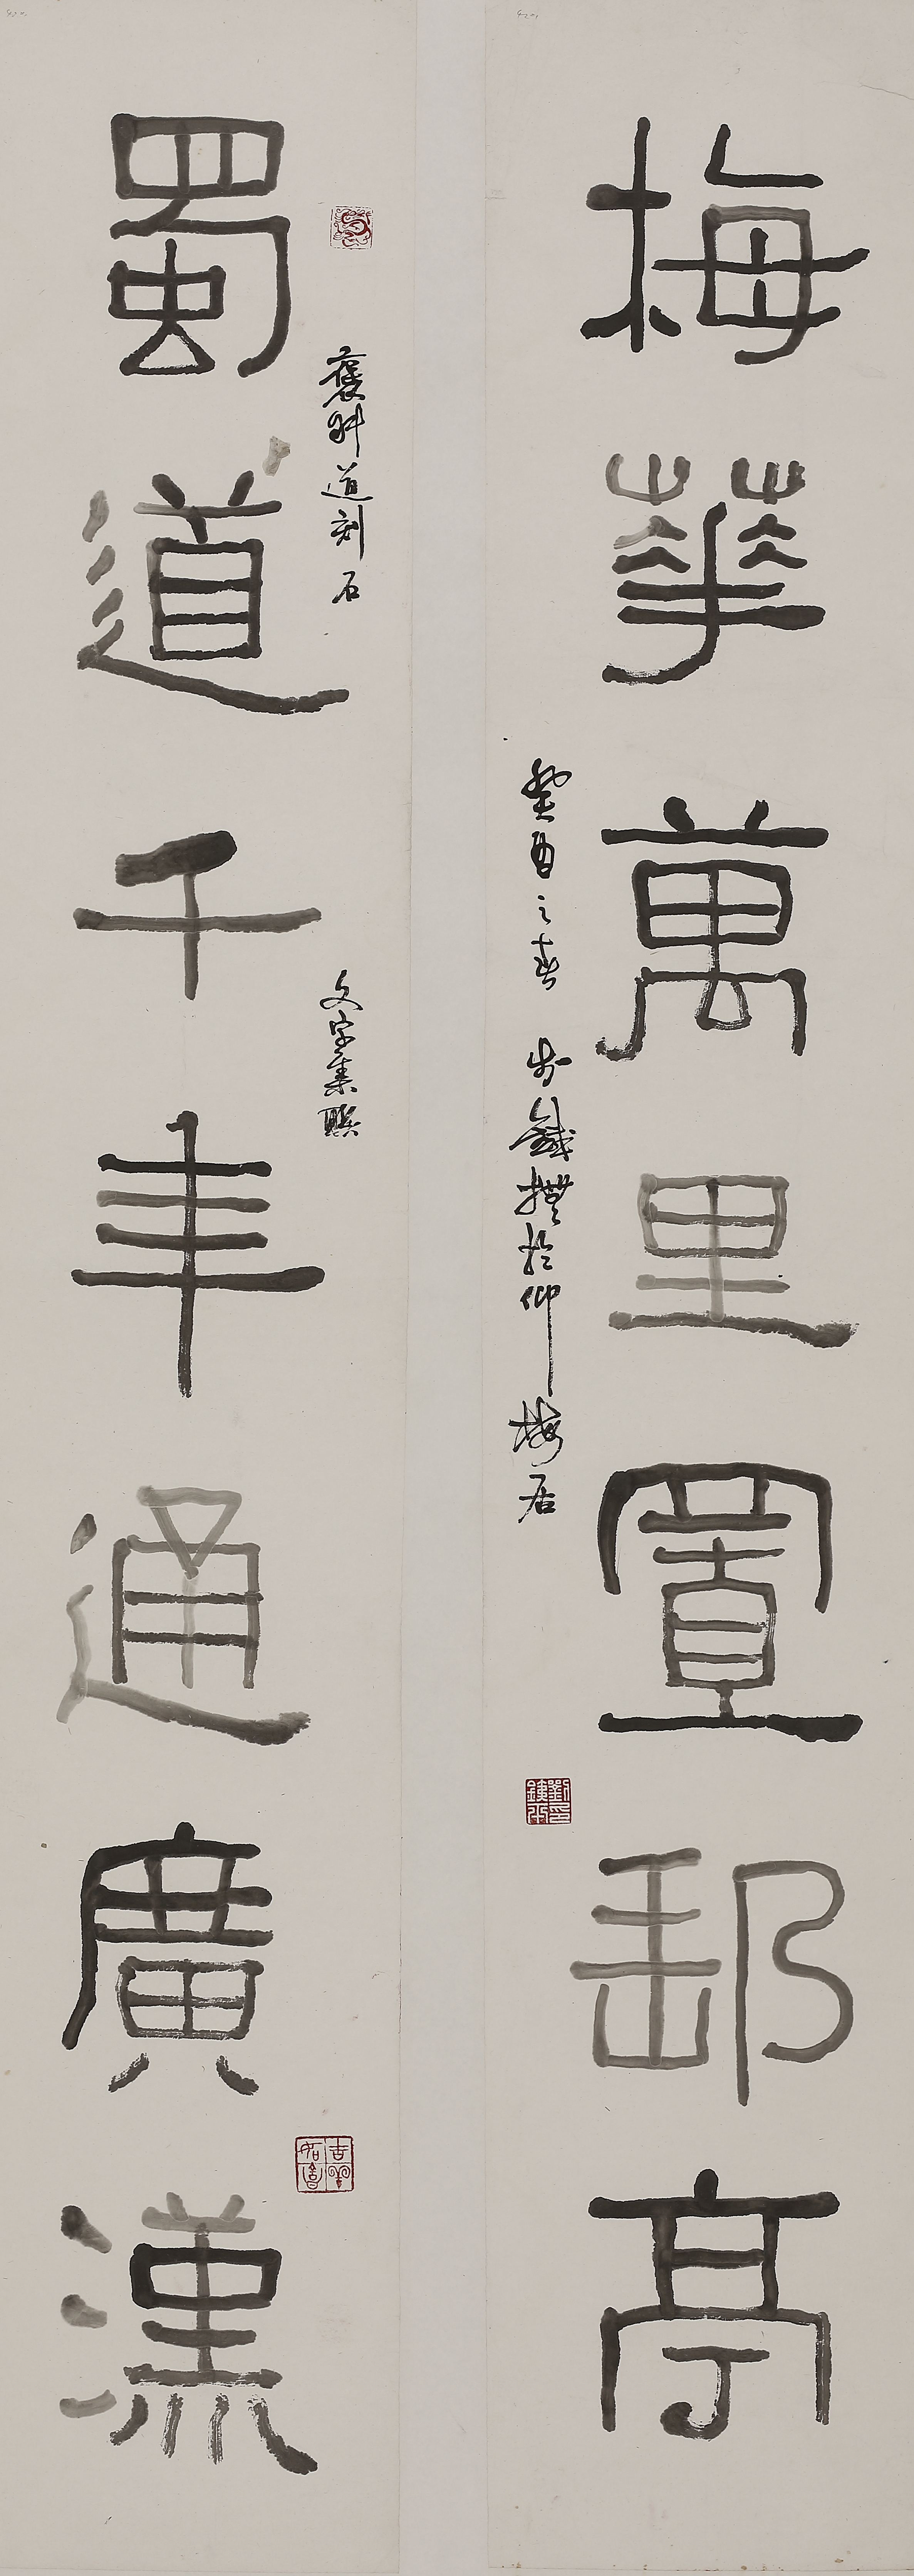 梅華萬里置郵亭
癸酉之春 鐵 於仰梅居
褒斜道刻石 文字集聯
蜀道千年通廣漢
吉羊如意